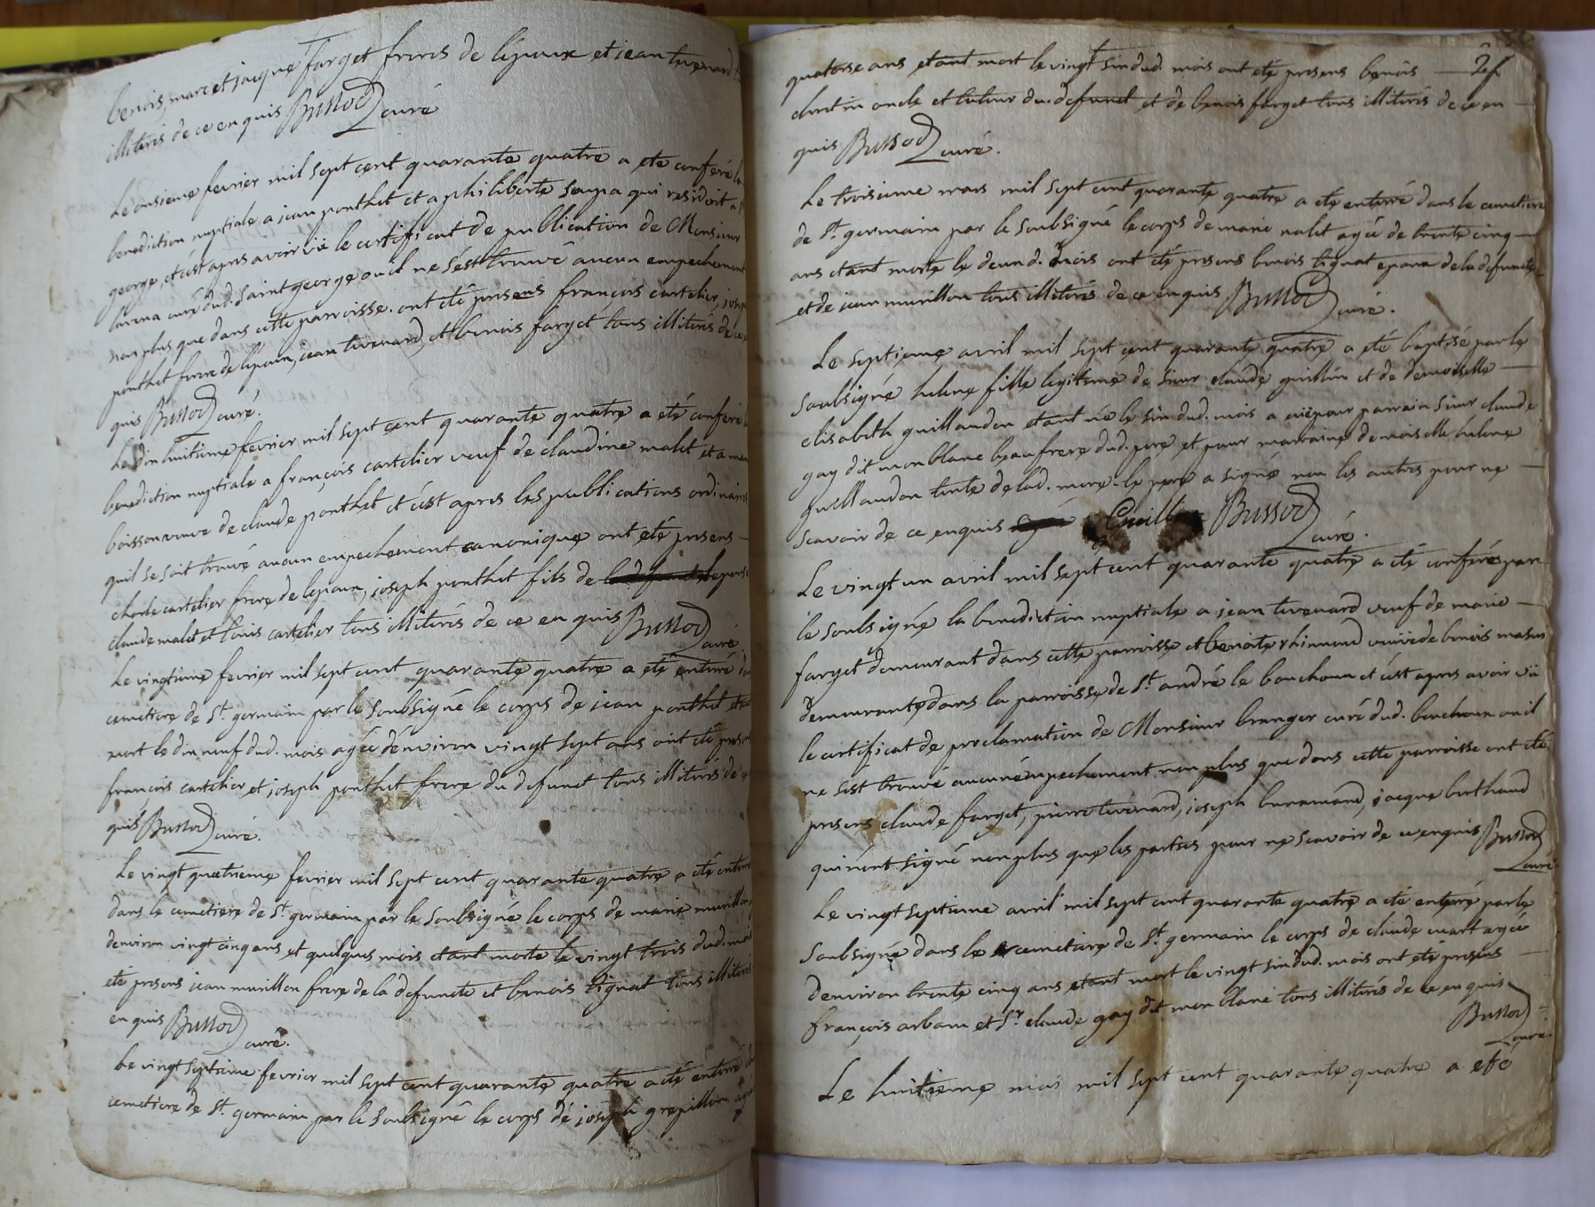 benois, marc et jacque farget freres de lépoux et jean tevenard
illiterés de ce enquis Bussod curé
Le onsieme fevrier mil sept cent quarante quatre a eté conferé la
benediction nuptiale a jean ponthet et a philiberte soupa qui residoit a
george, et c'est apres avoir vû le certificat de publication de Monsieur
curé dud. saint george ou il ne s'est trouvé aucun empechement
non plus que dans cette parroisse. ont eté presens françois cartelier, joseph
ponthet frere de l'epoux, jean tevenard, et benois farget tous illiterés de ce
quis Bussod curé.
Le dix huitieme fevrier mil sept cent quarante quatre a eté conferé
benediction nuptiale a françois cartelier veuf de claudine malet et a
boisson veuve de claude ponthet et c'est apres les publications ordinaires
quil se soit trouvé aucun empechement canonique ont eté presens
charle cartelier frere de lepoux, joseph ponthet fils de
claude malet et louis cartelier tous illiterés de ce enquis Bussod curé
Le vingtieme fevrier mil sept cent quarante quatre a eté enterré
cemetiere de St. germain par le soubsigné le corps de jean ponthet
mort le dix neuf dud. mois agée d'environ vingt sept ans ont eté presens
françois cartelier et joseph ponthet frere du defunct tous illiterés de
quis Bussod curé.
Le vingt quatrieme fevrier mil sept cent quarante quatre a eté enterré
dans le cemetiere de St. germain par le soubsigné le corps de marie murillon
denviron vingt cinq ans et quelques mois etant morte le vingt trois dud. mois
eté presens jean murillon frere de la defuncte et benois tignat tous illiterés
en quis Bussod curé.
Le vingt septieme fevrier mil sept cent quarante quatre a eté enterré
cemetiere de St. germain par le soubsigné le corps de joseph grapillon
quatorse ans etant mort le vingt six dud. mois ont eté presens benois
oncle et tuteur du defunct et de benois farget tous illiterés de ce en
quis Bussod curé.
Le troisieme mars mil sept cent quarante quatre a eté enterré dans le cemetiere
de St. germain par le soubsigné le corps de marie malet agée de trente cinq
ans etant morte le deux d. mois ont eté presens benois tignat epoux de la defuncte
et de jean murillon tous illiterés de ce enquis Bussod curé.
Le septieme avril mil sept cent quarante quatre a eté baptisé par le
soubsigné helene fille legitime de sieur claude guillin et de demoiselle
elisabeth guillaudon etant née le six dud. mois a eu pour parrain sieur claude
gay dit monblanc beaufrere dud. pere et pour marraine demoiselle helene
guillaudon tante de lad. mere. le pere a signé non les autres pour ne
scavoir de ce enquis Guillin Bussod curé.
Le vingt un avril mil sept cent quarante quatre a eté conferé par
le soubsigné la benediction nuptiale a jean tevenard veuf de marie
farget demeurant dans cette parroisse et benoite veuve de benois
demeurante dans la parroisse de St. andré le bouchoux et c'est apres avoir vû
le certificat de proclamation de Monsieur branger curé dud. bouchoux ou il
ne s'est trouvé aucun empechement non plus que dans cette parroisse ont eté
presens claude farget, pierre tevenard, joseph buramand, jacque berthaud
qui n'ont signé non plus que les parties pour ne scavoir de ce enquis Bussod curé
Le vingt septieme avril mil sept cent quarante quatre a eté enterré par le
soubsigné dans le cemetiere de St. germain le corps de claude cuart agée
d'environ trente cinq ans etant mort le vingt six dud. mois ont eté presens
françois arbau et Sr. claude gay dit monblanc tous illiterés de ce enquis
Bussod curé.
Le huitieme mai mil sept cent quarante quatre a eté